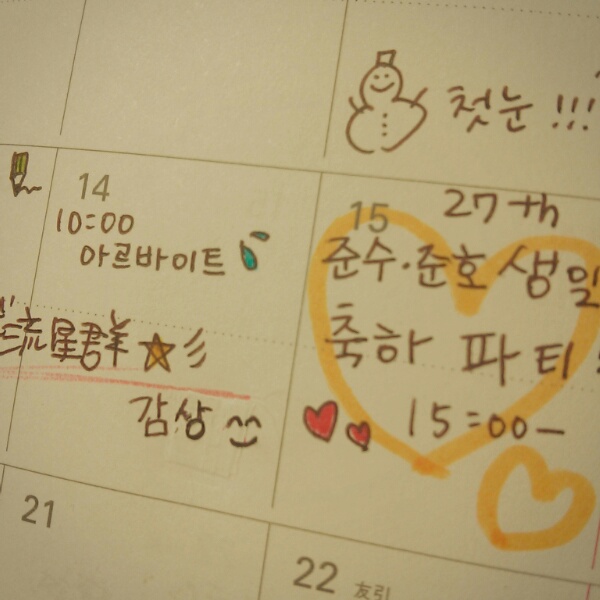 첫눈 !!!
14
10:00
아르바이트
流星群
감상
15
27th
준수·준호 생일
축하 파티
15:00-
21
22 友引